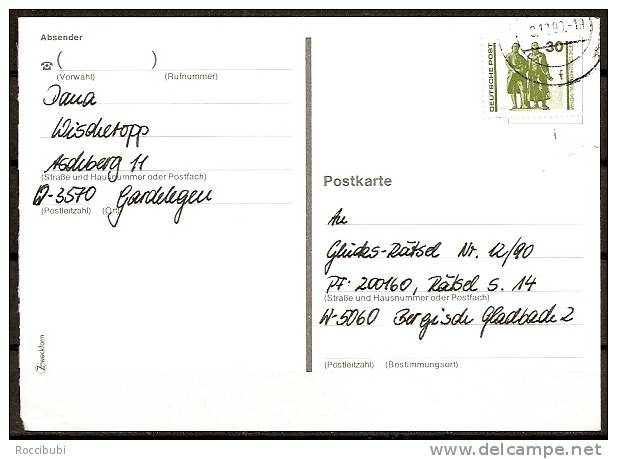 Absender
☎ ( )
(Vorwahl) (Rufnummer)
Dana
Wischeropp
Aschberg 11
(Straße und Hausnummer oder Postfach)
O-3570 Gardelegen
(Postleitzahl) (Ort)
Zweckform
DEUTSCHE POST
30
Postkarte
An
Glücks-Rätsel Nr. 12/90
PF: 200160, Rätsel S. 14
(Straße und Hausnummer oder Postfach)
W-5060 Bergisch Gladbach 2
(Postleitzahl) (Bestimmungsort)
Roccibubi
www.delcampe.net